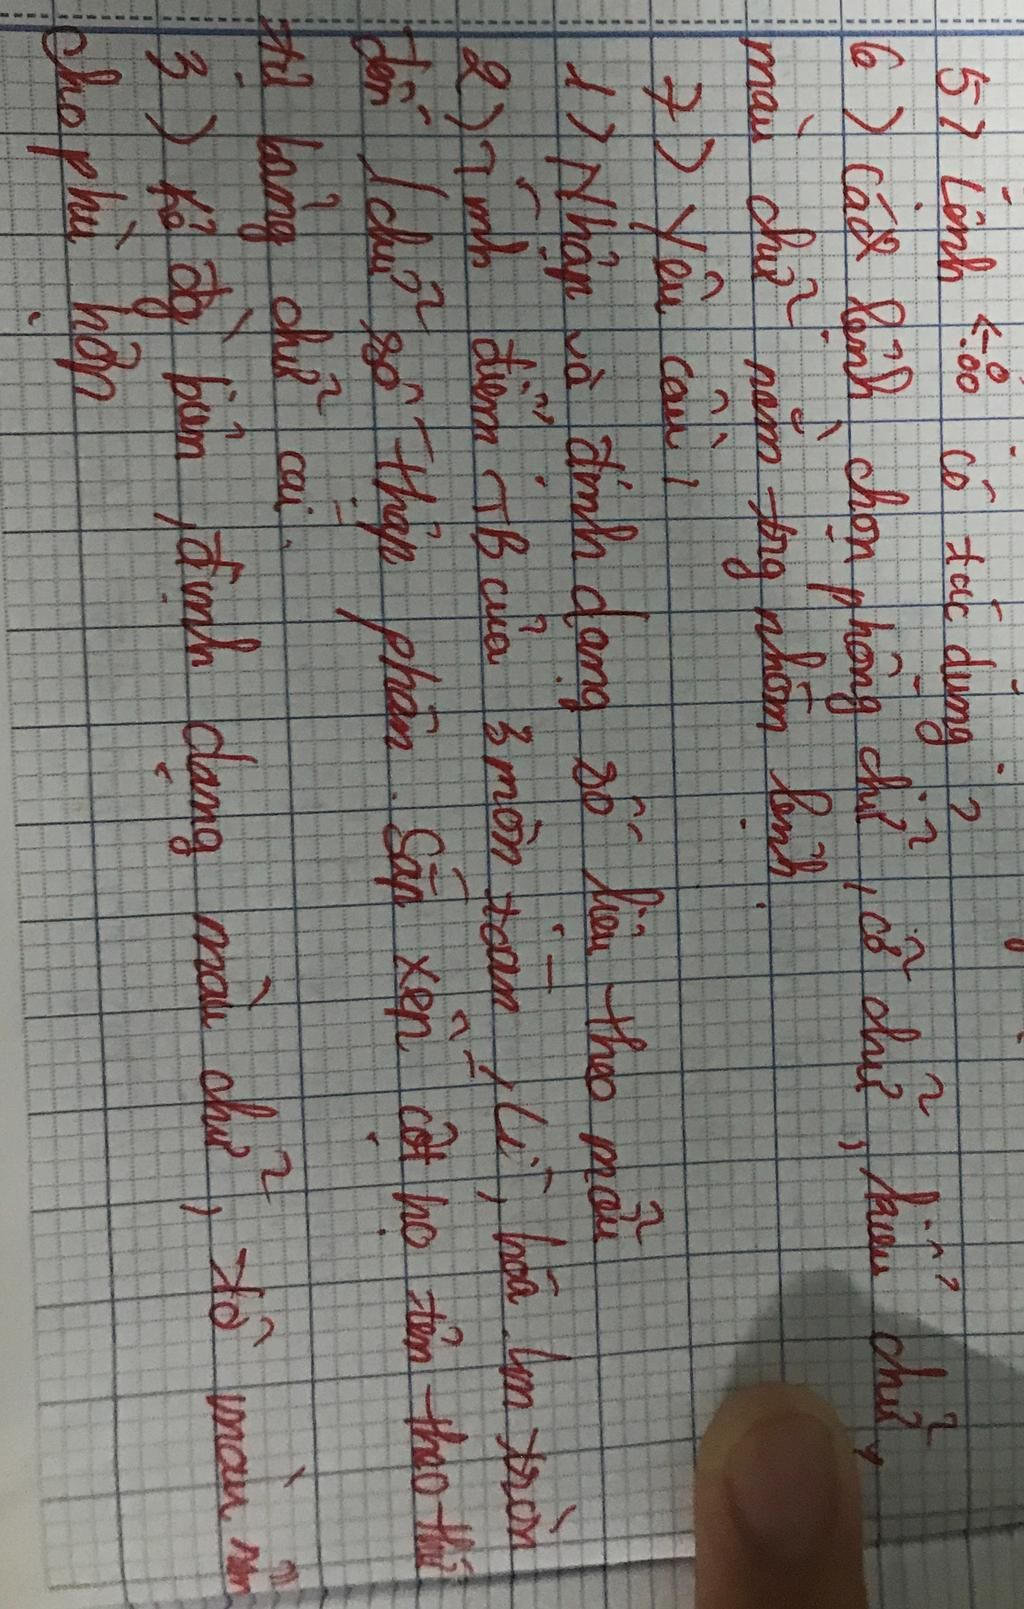 5) Lệnh ←.0 .00 có tác dụng ?
6) Các lệnh chọn phông chữ, cỡ chữ, kiểu chữ,
màu chữ nằm trg nhóm lệnh
7) Yêu cầu :
1) Nhập và định dạng số liệu theo mẫu
2) Tính điểm TB của 3 môn toán, Lí, hóa làm tròn
đến 1 chữ số thập phân. Sắp xếp cột họ tên theo thứ
tự bảng chữ cái.
3) Kẻ đg biên, định dạng màu chữ, tô màu nền
cho phù hợp